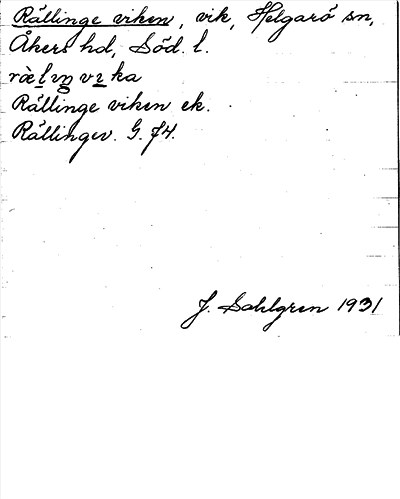 Rållinge viken, vik, Helgarö sn,
Åkers hd, Söd. l.
Rållinge viken ek.
Rållingev. G. J4.
J. Sahlgren 1931